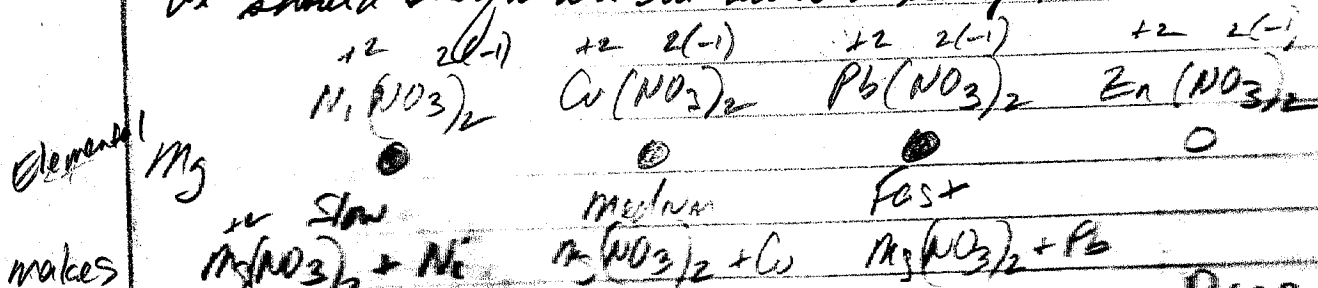 +2 2(-1) +2 2(-1) +2 2(-1) +2 2(-1)
Ni(NO3)2 Cu(NO3)2 Pb(NO3)2 Zn(NO3)2
Elemental Mg
Slow medium Fast
+2
makes Mg(NO3)2 + Ni Mg(NO3)2 + Cu Mg(NO3)2 + Pb